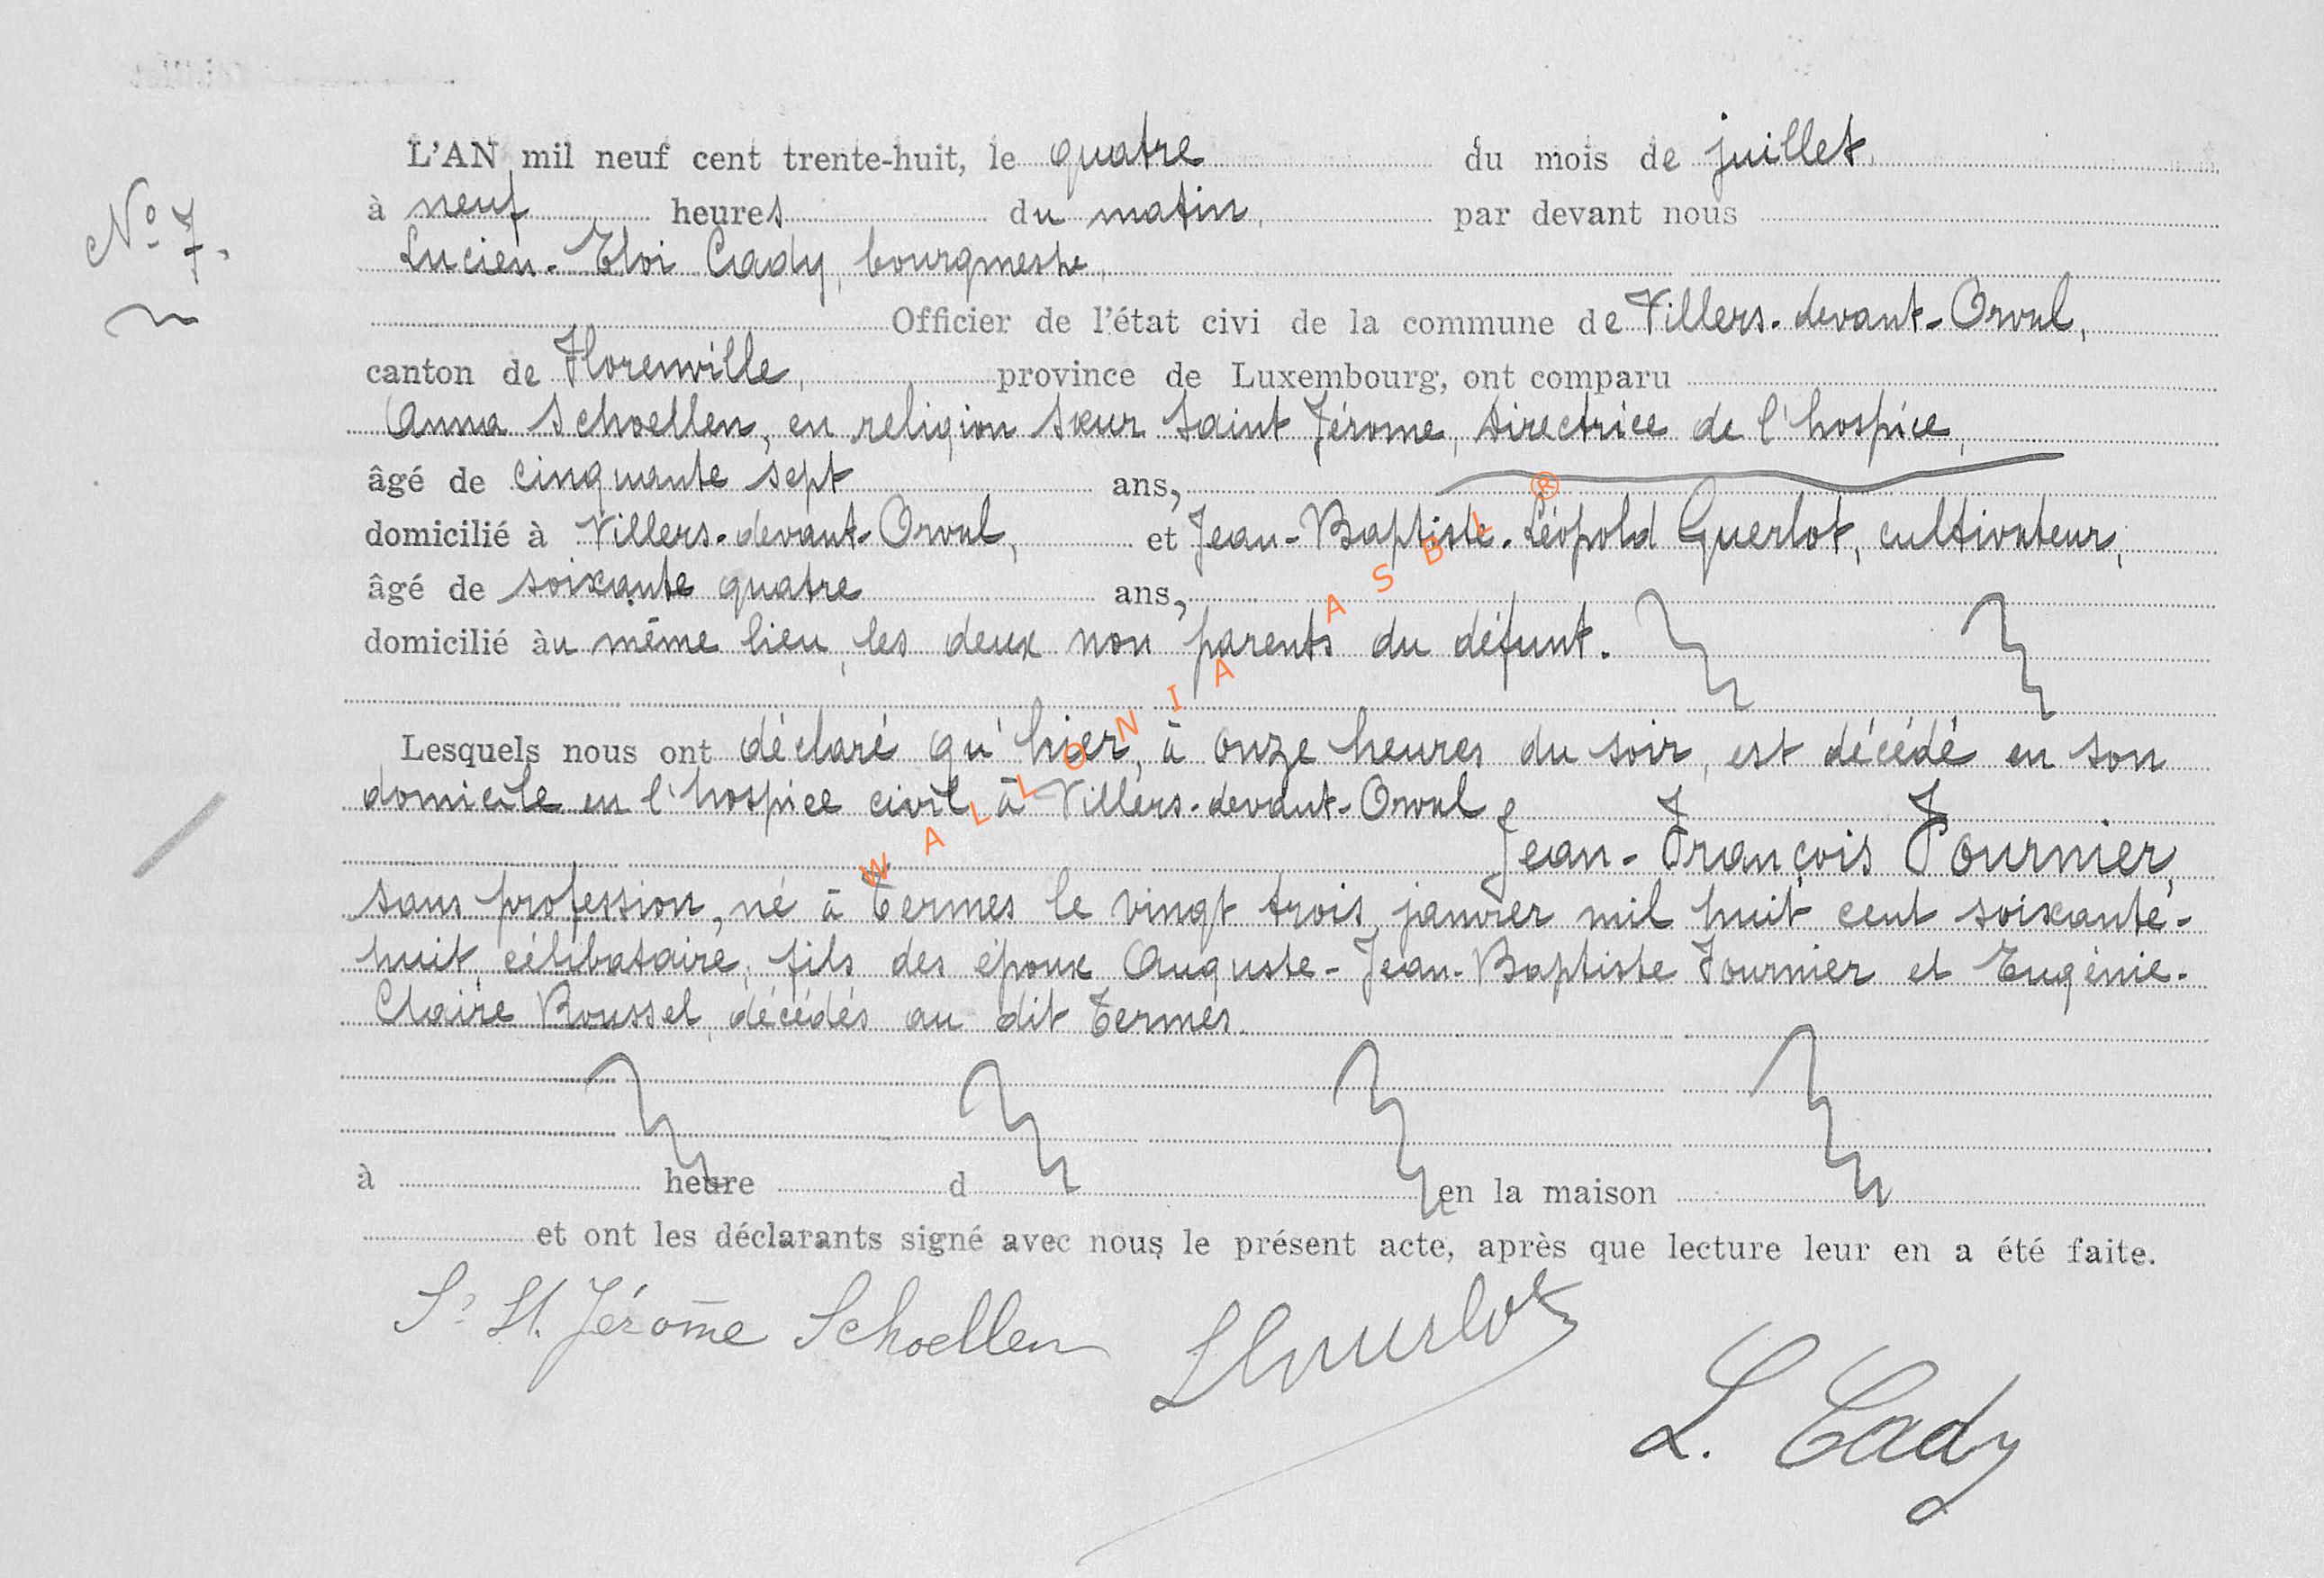 N° 7.
L'AN mil neuf cent trente-huit, le quatre du mois de juillet,
à neuf heures du matin, par devant nous
Lucien-Eloi Cady, bourgmestre,
Officier de l'état civi de la commune de Villers-devant-Orval,
canton de Florenville, province de Luxembourg, ont comparu
Anna Schoellen, en religion sœur Saint Jérome, directrice de l'hospice,
âgé de cinquante sept ans,
domicilié à Villers-devant-Orval, et Jean-Baptiste-Léopold Guerlot, cultivateur,
âgé de soixante quatre ans,
domicilié au même lieu, les deux non parents du défunt.
Lesquels nous ont déclaré qu'hier, à onze heures du soir, est décédé en son
domicile en l'hospice civil à Villers-devant-Orval
Jean-François Fournier,
sans profession, né à Termes le vingt trois janvier mil huit cent soixante-
huit célibataire, fils des époux Auguste-Jean-Baptiste Fournier et Eugénie-
Claire Roussel, décédés au dit Termes.
à heure d en la maison
et ont les déclarants signé avec nous le présent acte, après que lecture leur en a été faite.
Sr St. Jérome Schoellen LGuerlot
L. Cady
WALLONIA ASBL ®